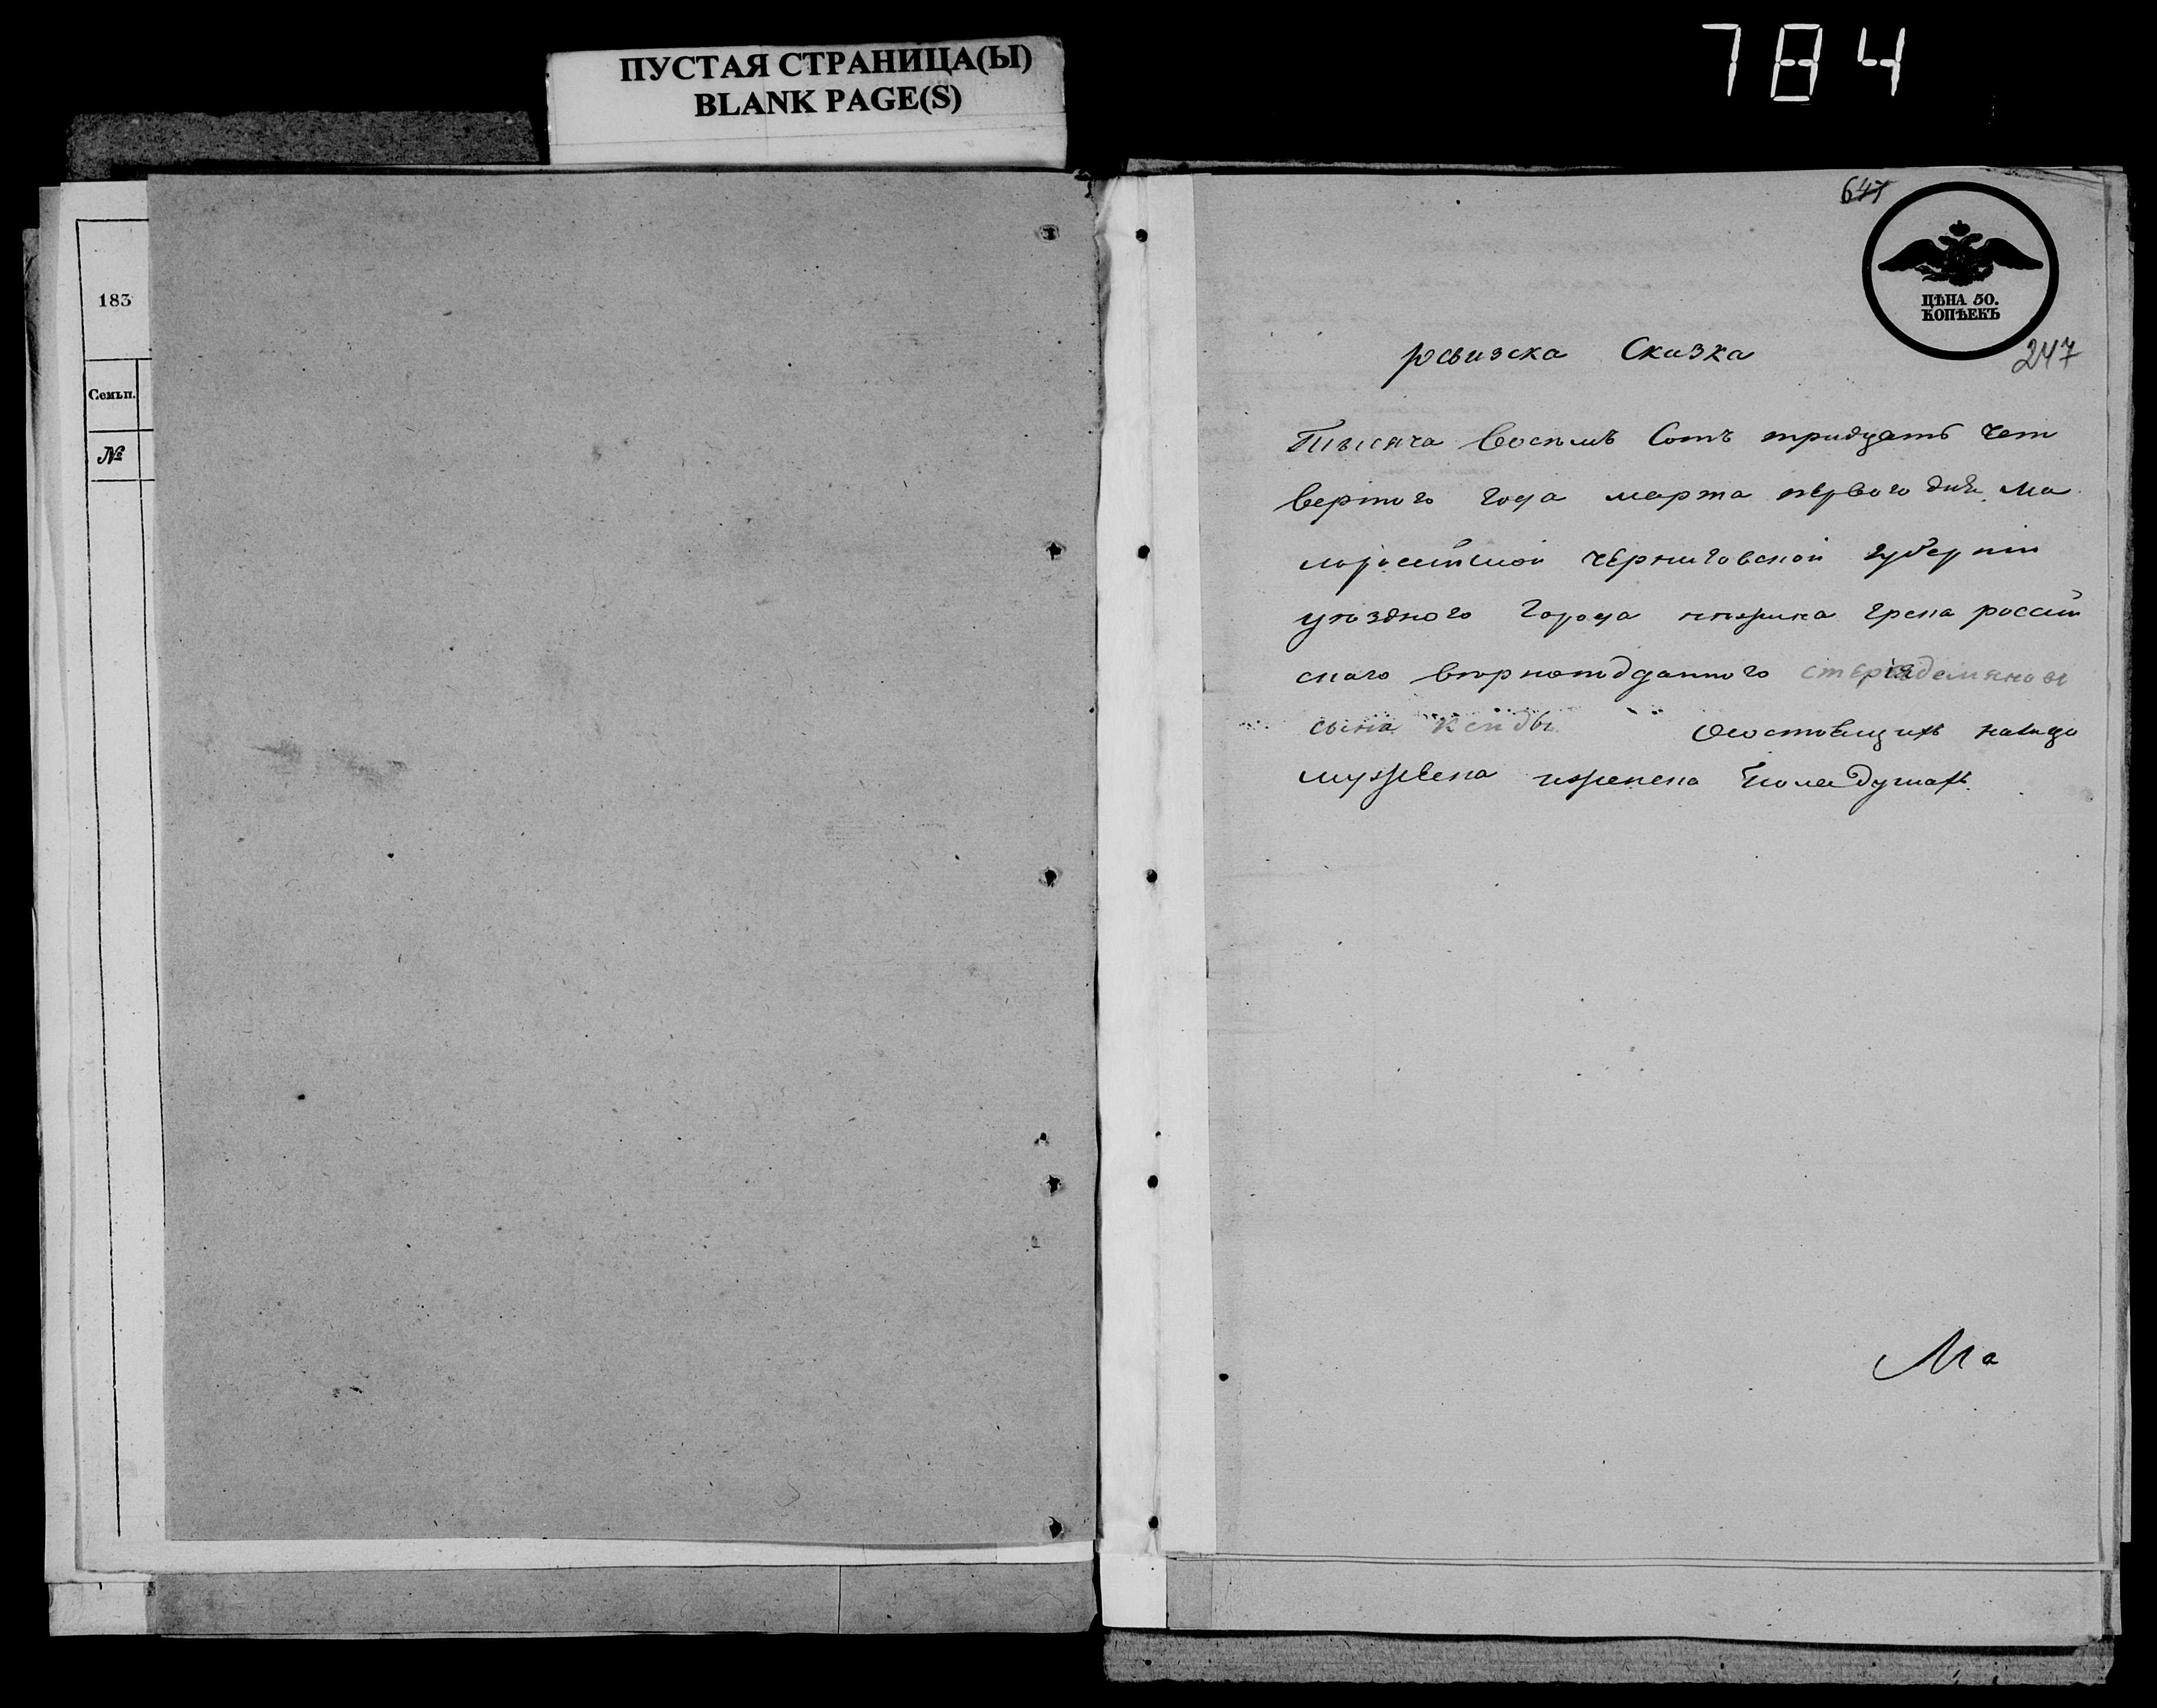 ПУСТАЯ СТРАНИЦА(Ы)
BLANK PAGE(S)
784
183
Семьи.
№
647
ЦѢНА 50.
КОПѢЕКЪ
247
ревизска Сказка
Тысяча Восемъ Сотъ тридцать чет
вертого года марта первого дня. Ма
лоросійской черниговской губерніи
уѣздного города нѣжина грека россій
скаго вѣрноподданного стерія демянова
сына
Осостоящихъ налицо
мужеска иженска пола душахъ.
Ма